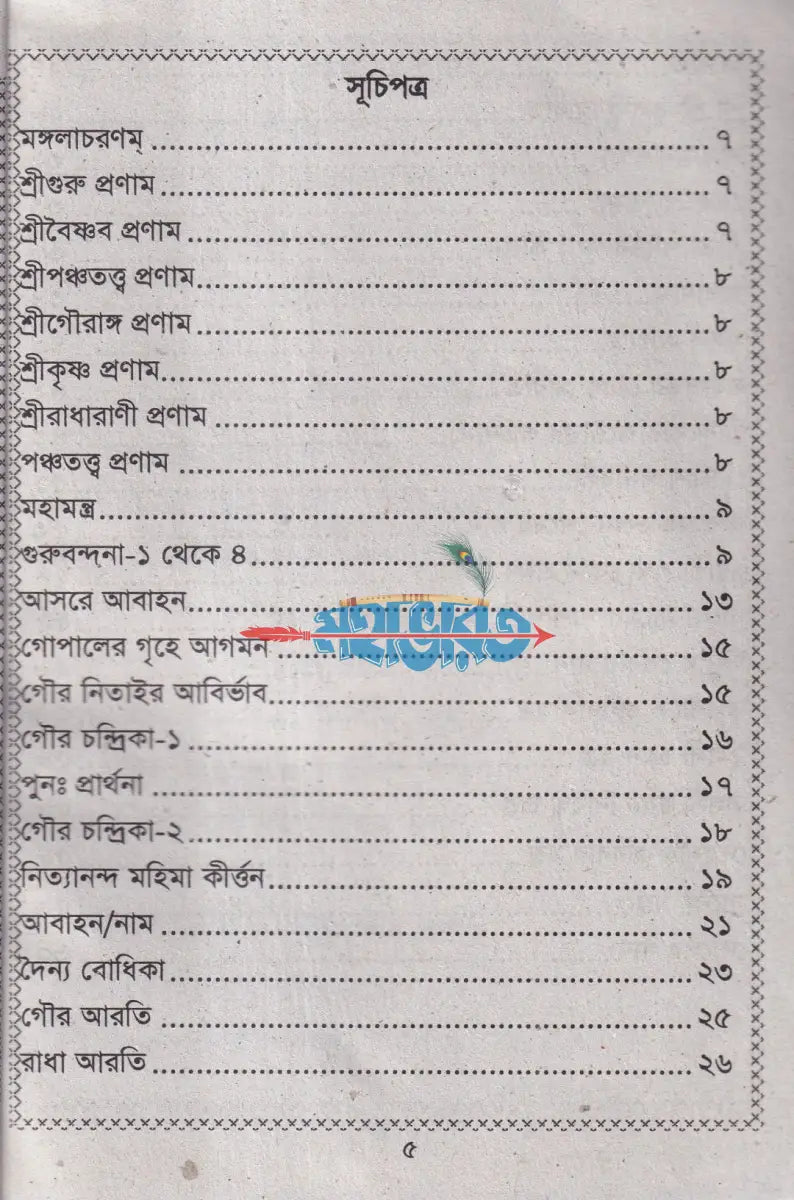 সূচিপত্র
মঙ্গলাচরণম্ ........ ৭
শ্রীগুরু প্রণাম ........ ৭
শ্রীবৈষ্ণব প্রণাম ........ ৭
শ্রীপঞ্চতত্ত্ব প্রণাম ........ ৮
শ্রীগৌরাঙ্গ প্রণাম ........ ৮
শ্রীকৃষ্ণ প্রণাম ........ ৮
শ্রীরাধারাণী প্রণাম ........ ৮
পঞ্চতত্ত্ব প্রণাম ........ ৮
মহামন্ত্র ........ ৯
গুরুবন্দনা-১ থেকে ৪ ........ ৯
আসরে আবাহন ........ ১৩
মহাভারত
গোপালের গৃহে আগমন ........ ১৫
গৌর নিতাইর আবির্ভাব ........ ১৫
গৌর চন্দ্রিকা-১ ........ ১৬
পুনঃ প্রার্থনা ........ ১৭
গৌর চন্দ্রিকা-২ ........ ১৮
নিত্যানন্দ মহিমা কীর্ত্তন ........ ১৯
আবাহন/নাম ........ ২১
দৈন্য বোধিকা ........ ২৩
গৌর আরতি ........ ২৫
রাধা আরতি ........ ২৬
৫